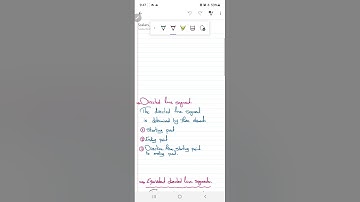 Directed line segment
The directed line segment
is determined by three elements
① Starting point
② Ending point
③ Direction from starting point
to ending point.
Equivalent directed line segments